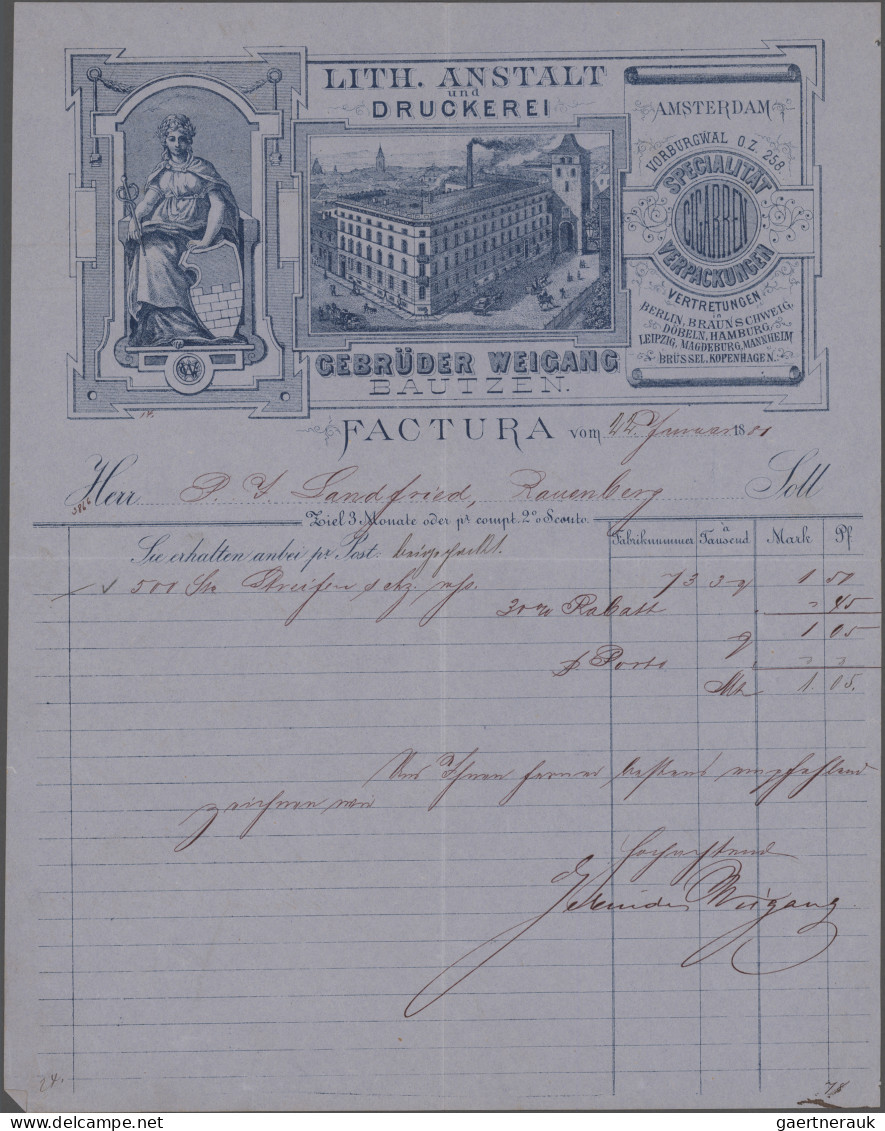 LITH. ANSTALT
und
DRUCKEREI
AMSTERDAM
VORBURGWAL O.Z. 258.
SPECIALITÄT
CIGARREN
VERPACKUNGEN
VERTRETUNGEN
in
BERLIN, BRAUNSCHWEIG,
DÖBELN, HAMBURG,
LEIPZIG, MAGDEBURG, MANNHEIM
BRÜSSEL, KOPENHAGEN.
GEBRÜDER WEIGANG
BAUTZEN.
FACTURA vom 22. Januar 1881
Herr P. J. Landfried, Rauenberg Soll
Ziel 3 Monate oder pr. compt. 2% Sconto.
Fabriknummer à Tausend Mark Pf
Sie erhalten anbei pr. Post: beigepackt.
500 Streifen 73 3 1 50
30% Rabatt 45
1 05
Porto
Mk 1. 05.
Uns Ihnen ferner bestens empfehlend
zeichnen wir
Hochachtend
Gebrüder Weigang
24.
gaertnerauk